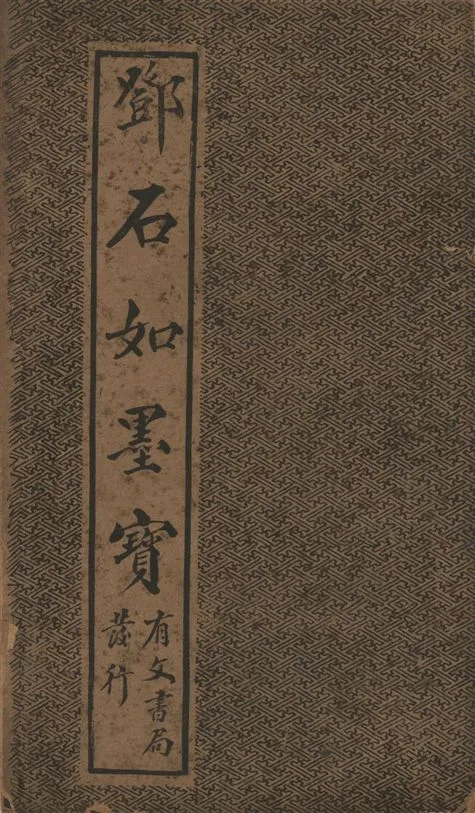 鄧石如墨寶
有文書局
發行